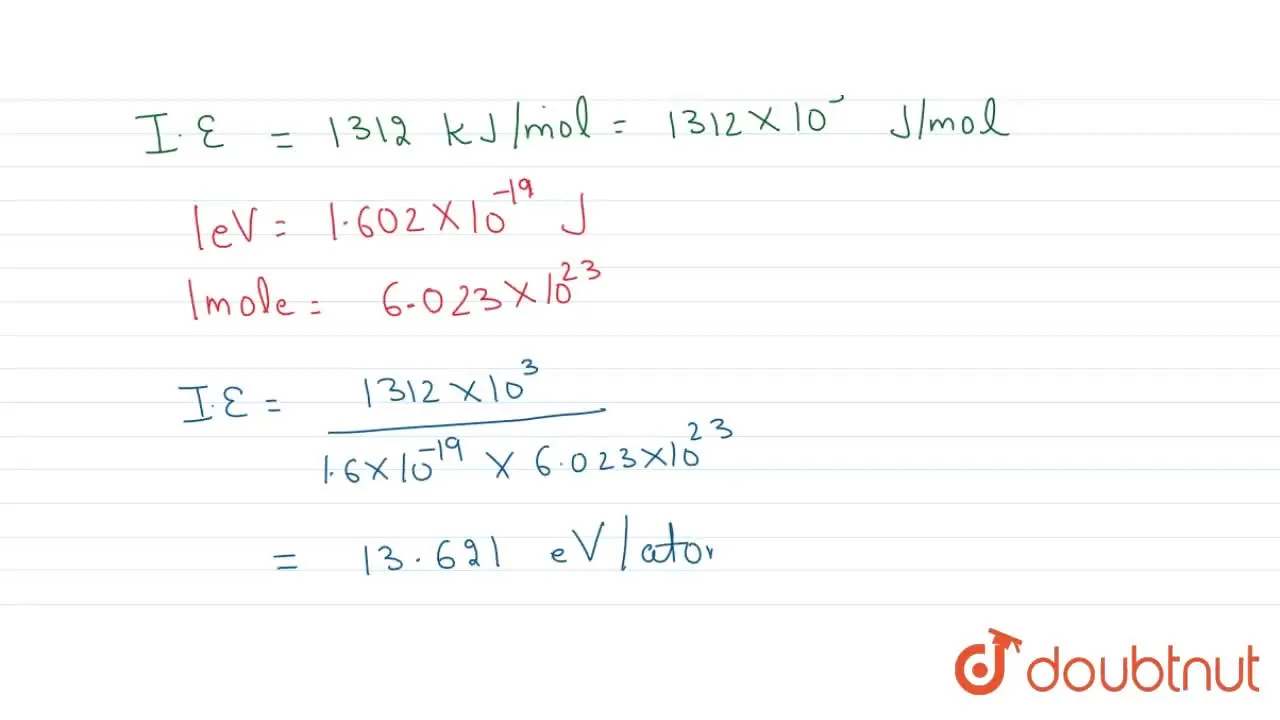 I.E = 1312 kJ/mol = 1312 × 10 J/mol
1eV = 1.602 × 10⁻¹⁹ J
1mole = 6.023 × 10²³
I.E = 1312 × 10³
1.6 × 10⁻¹⁹ × 6.023 × 10²³
= 13.621 eV/ator
doubtnut